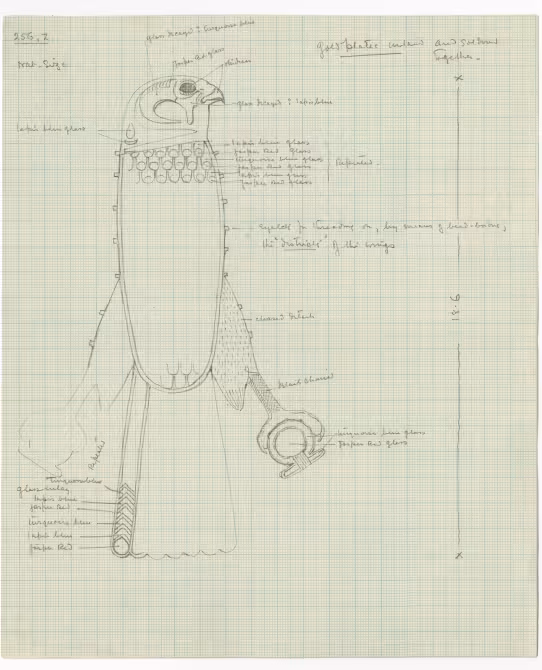 256, Z
Nat. Size
glass decayed ? turquoise blue
Jasper Red glass
Obsidian
gold plates inlaid and soldered
together.
glass decayed ? lapis blue
lapis blue glass
lapis blue glass
jasper Red Glass
turquoise blue glass
jasper Red glass
lapis blue glass
jasper Red glass
Repeated.
eyelets for threading on, by means of bead-borders,
the "districts" of the wings
13.6
chased details
turquoise blue glass
jasper Red glass
Repeated
turquoise blue
glass inlay
lapis blue
jasper Red
turquoise blue
lapis blue
jasper Red